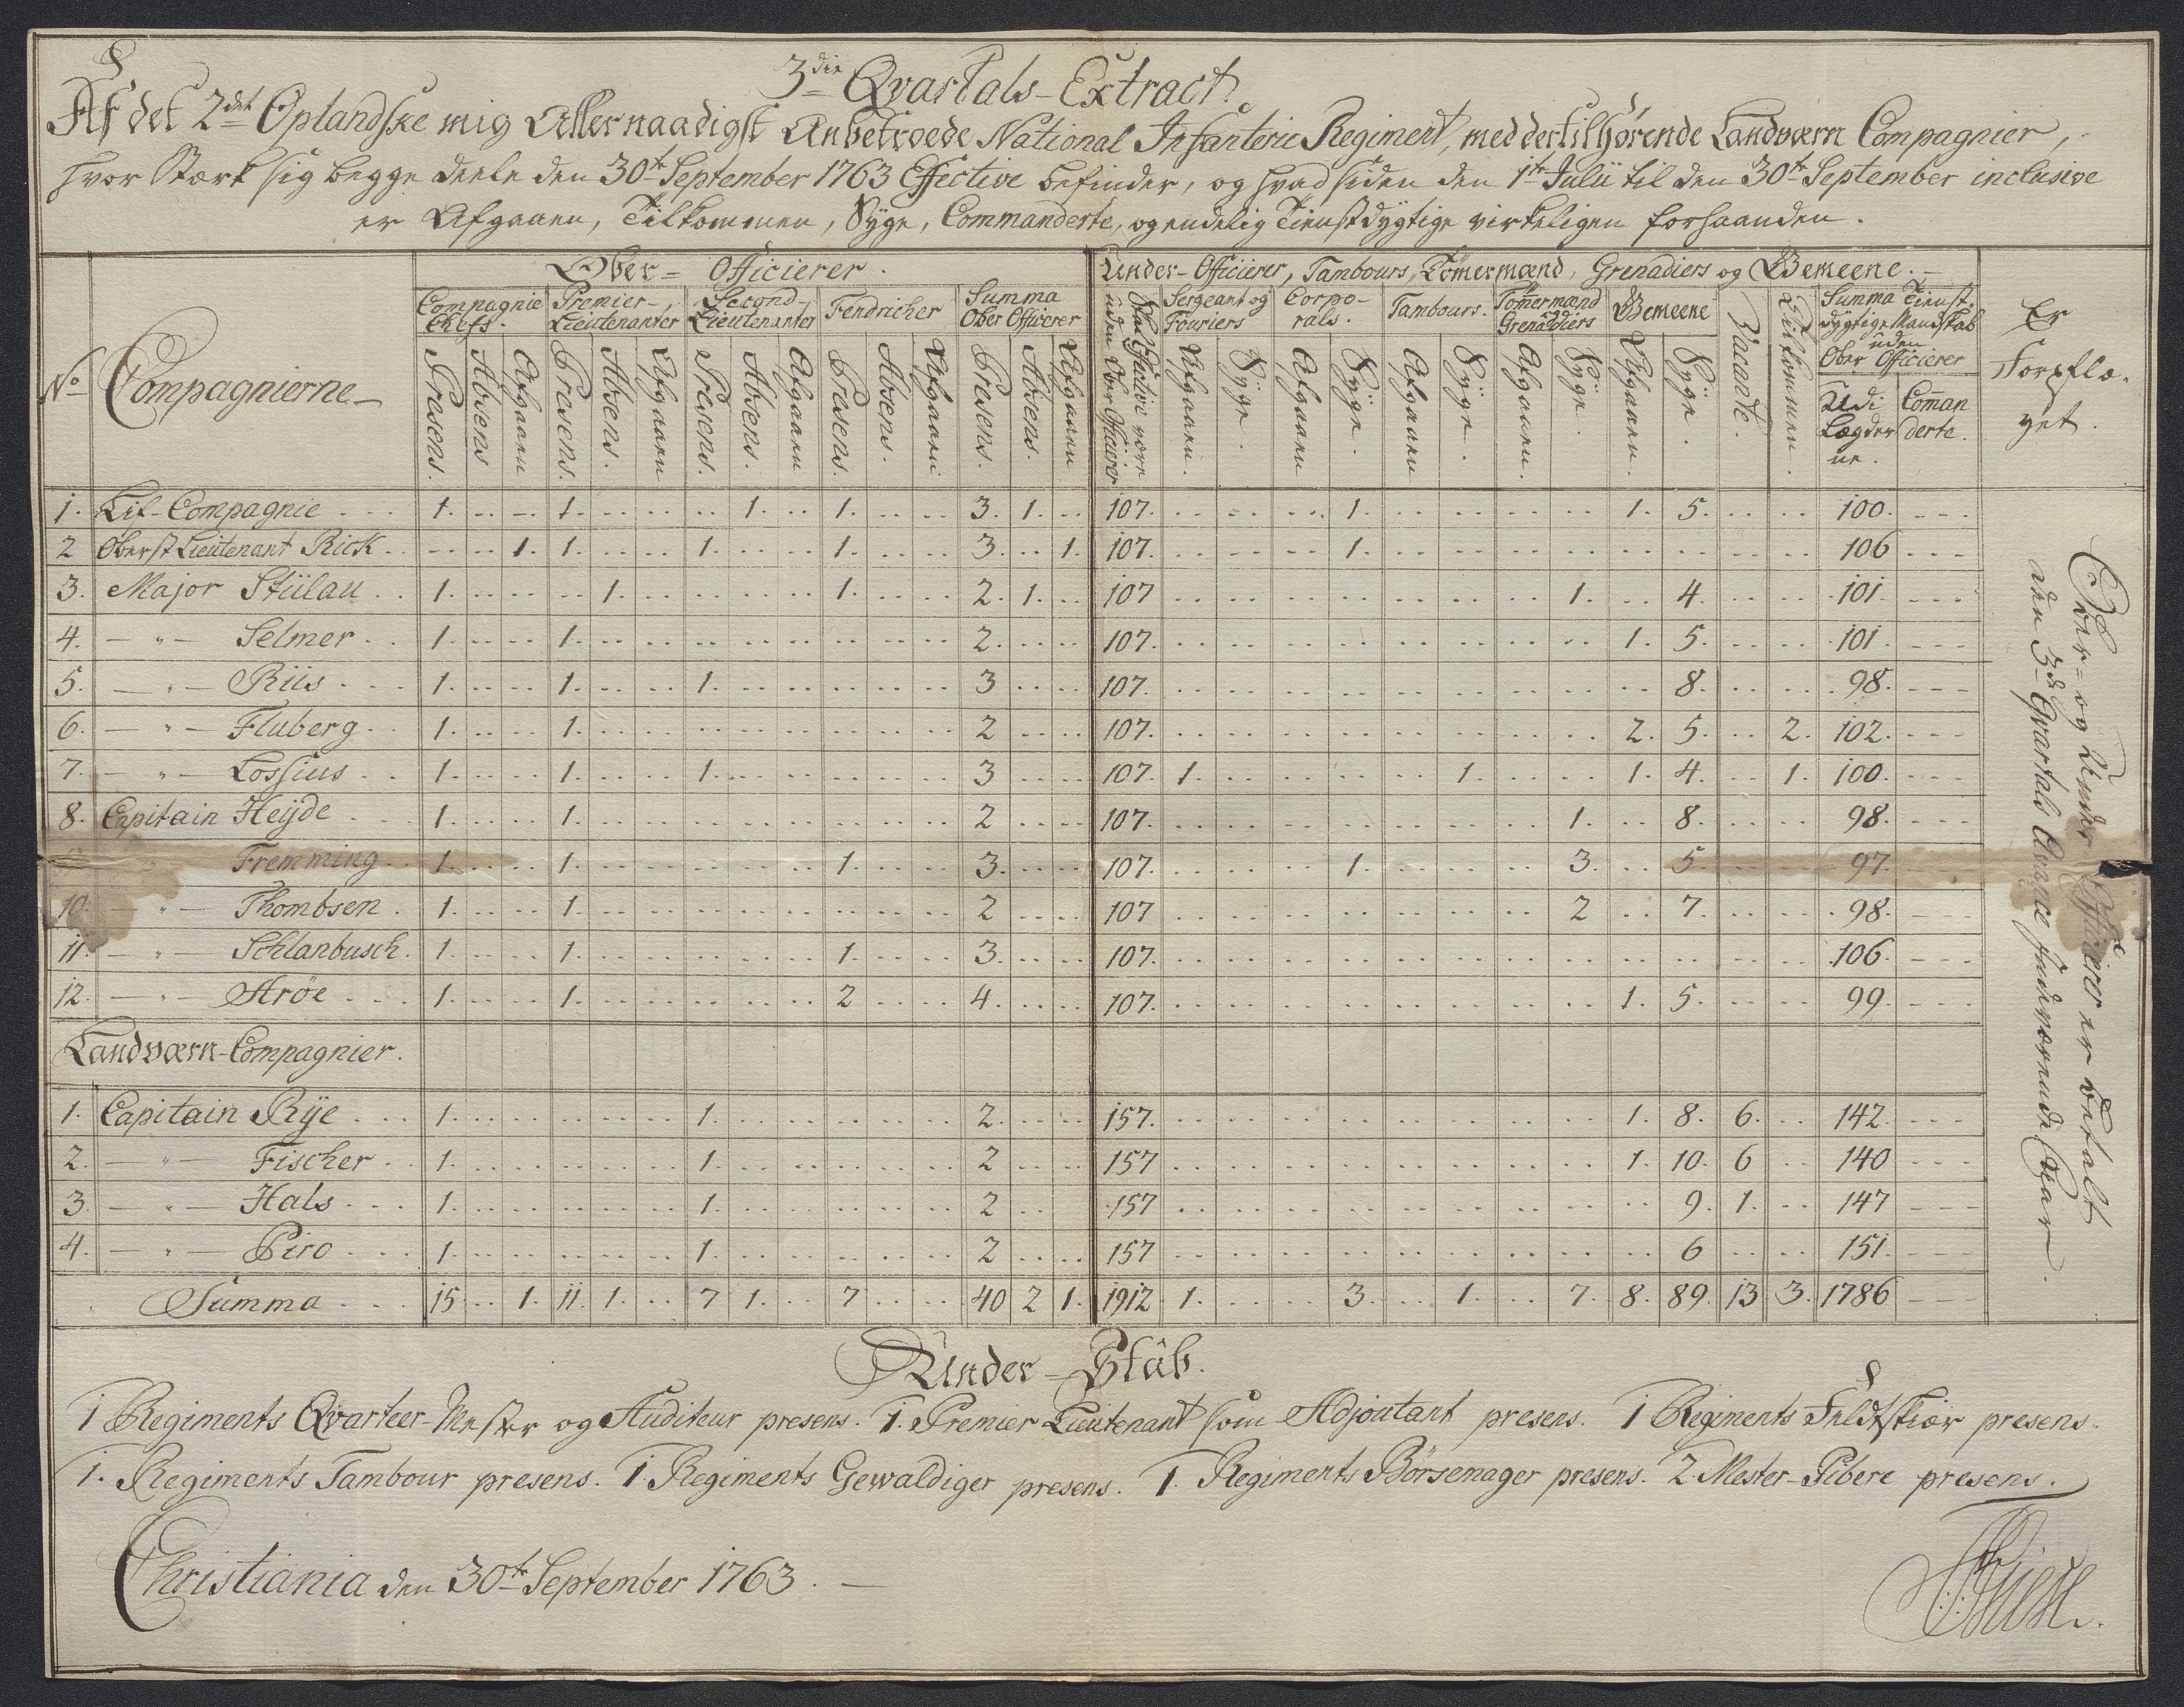 3die Qvartals-Extract.
Af det 2det Oplandske mig Allernaadigst Anbetroede National Infanterie Regiment, med dertilhørende Landværn Compagnier,
hvor Stærk sig begge deele den 30te September 1763 Effective befinder, og hvad siden den 1te Julii til den 30te September inclusive
er Afgaaen, Tilkommen, Syge, Commanderte, og endelig Tienstdygtige virkeligen forhaanden.
No Compagnierne
Ober-Officierer.
Compagnie Chefs. Premier-Lieutenanter Second-Lieutenanter Fendricher Summa Ober Officerer
Presens. Absens Afgaaen Presens. Absens. Afgaaen Presens. Absens. Afgaaen Presens. Absens. Afgaaen Presens. Absens. Afgaaen
Under-Officiers, Tambours, Tömermænd, Grenadiers og Gemeene.
uden Ober Officerer
Sergeant og Fouriers Corporals. Tambours. Tömermænd og Grenadiers Gemeene Vacante. Tilkommen.
Afgaaen. Syge. Afgaaen Syge. Afgaaen Syge. Afgaaen. Syge. Afgaaen. Syge.
Summa Tienstdygtige Mandskab uden Ober Officerer
Udi Lægderne. Comanderte.
Er Forpfløget.
1. Lif-Compagnie 1. 1. 1. 1. 3. 1. 107. 1. 1. 5. 100.
2 Oberst Lieutenant Rick 1. 1. 1. 1. 3. 1. 107. 1. 106
3. Major Stülau 1. 1. 1. 2. 1. 107 1. 4. 101.
4. - " - Selmer 1. 1. 2. 107. 1. 5. 101.
5. - " - Riis 1. 1. 1. 3 107. 8. 98.
6. - " - Fluberg 1. 1. 2 107. 2. 5. 2. 102.
7. - " - Lossius 1. 1. 1. 3 107. 1. 1. 1. 4. 1. 100.
8. Capitain Heyde 1. 1. 2 107. 1. 8. 98.
9. " Fremming 1. 1. 1. 3. 107. 1. 3. 5 97.
10. - " - Thombsen 1. 1. 2 107 2 7. 98.
11. - " - Schlanbusch. 1. 1. 1. 3. 107. 106.
12. - " - Arøe 1. 1. 2 4. 107. 1. 5. 99.
Landværn-Compagnier.
1. Capitain Rye 1. 1. 2. 157. 1. 8. 6. 142.
2. - " - Fischer 1. 1. 2 157 1. 10. 6 140
3. - " - Hals 1. 1. 2 157 9. 1. 147
4. - " - Piro 1. 1. 2 157 6 151.
Summa 15 1. 11. 1. 7 1. 7 40 2 1. 1912 1. 3. 1. 7. 8. 89. 13 3. 1786
Ober- og Under-Officierer er betalt
den 3de Qvartals Avance indeværende Aar.
Under-Stâb.
1 Regiments Qvarteer-Mester og Auditeur presens. 1. Premier Lieutenant som Adjoutant presens. 1 Regiments Feldtskiær presens.
1. Regiments Tambour presens. 1 Regiments Gewaldiger presens. 1. Regiments Børsemager presens. 2. Mester-Pibere presens.
Christiania den 30te September 1763.